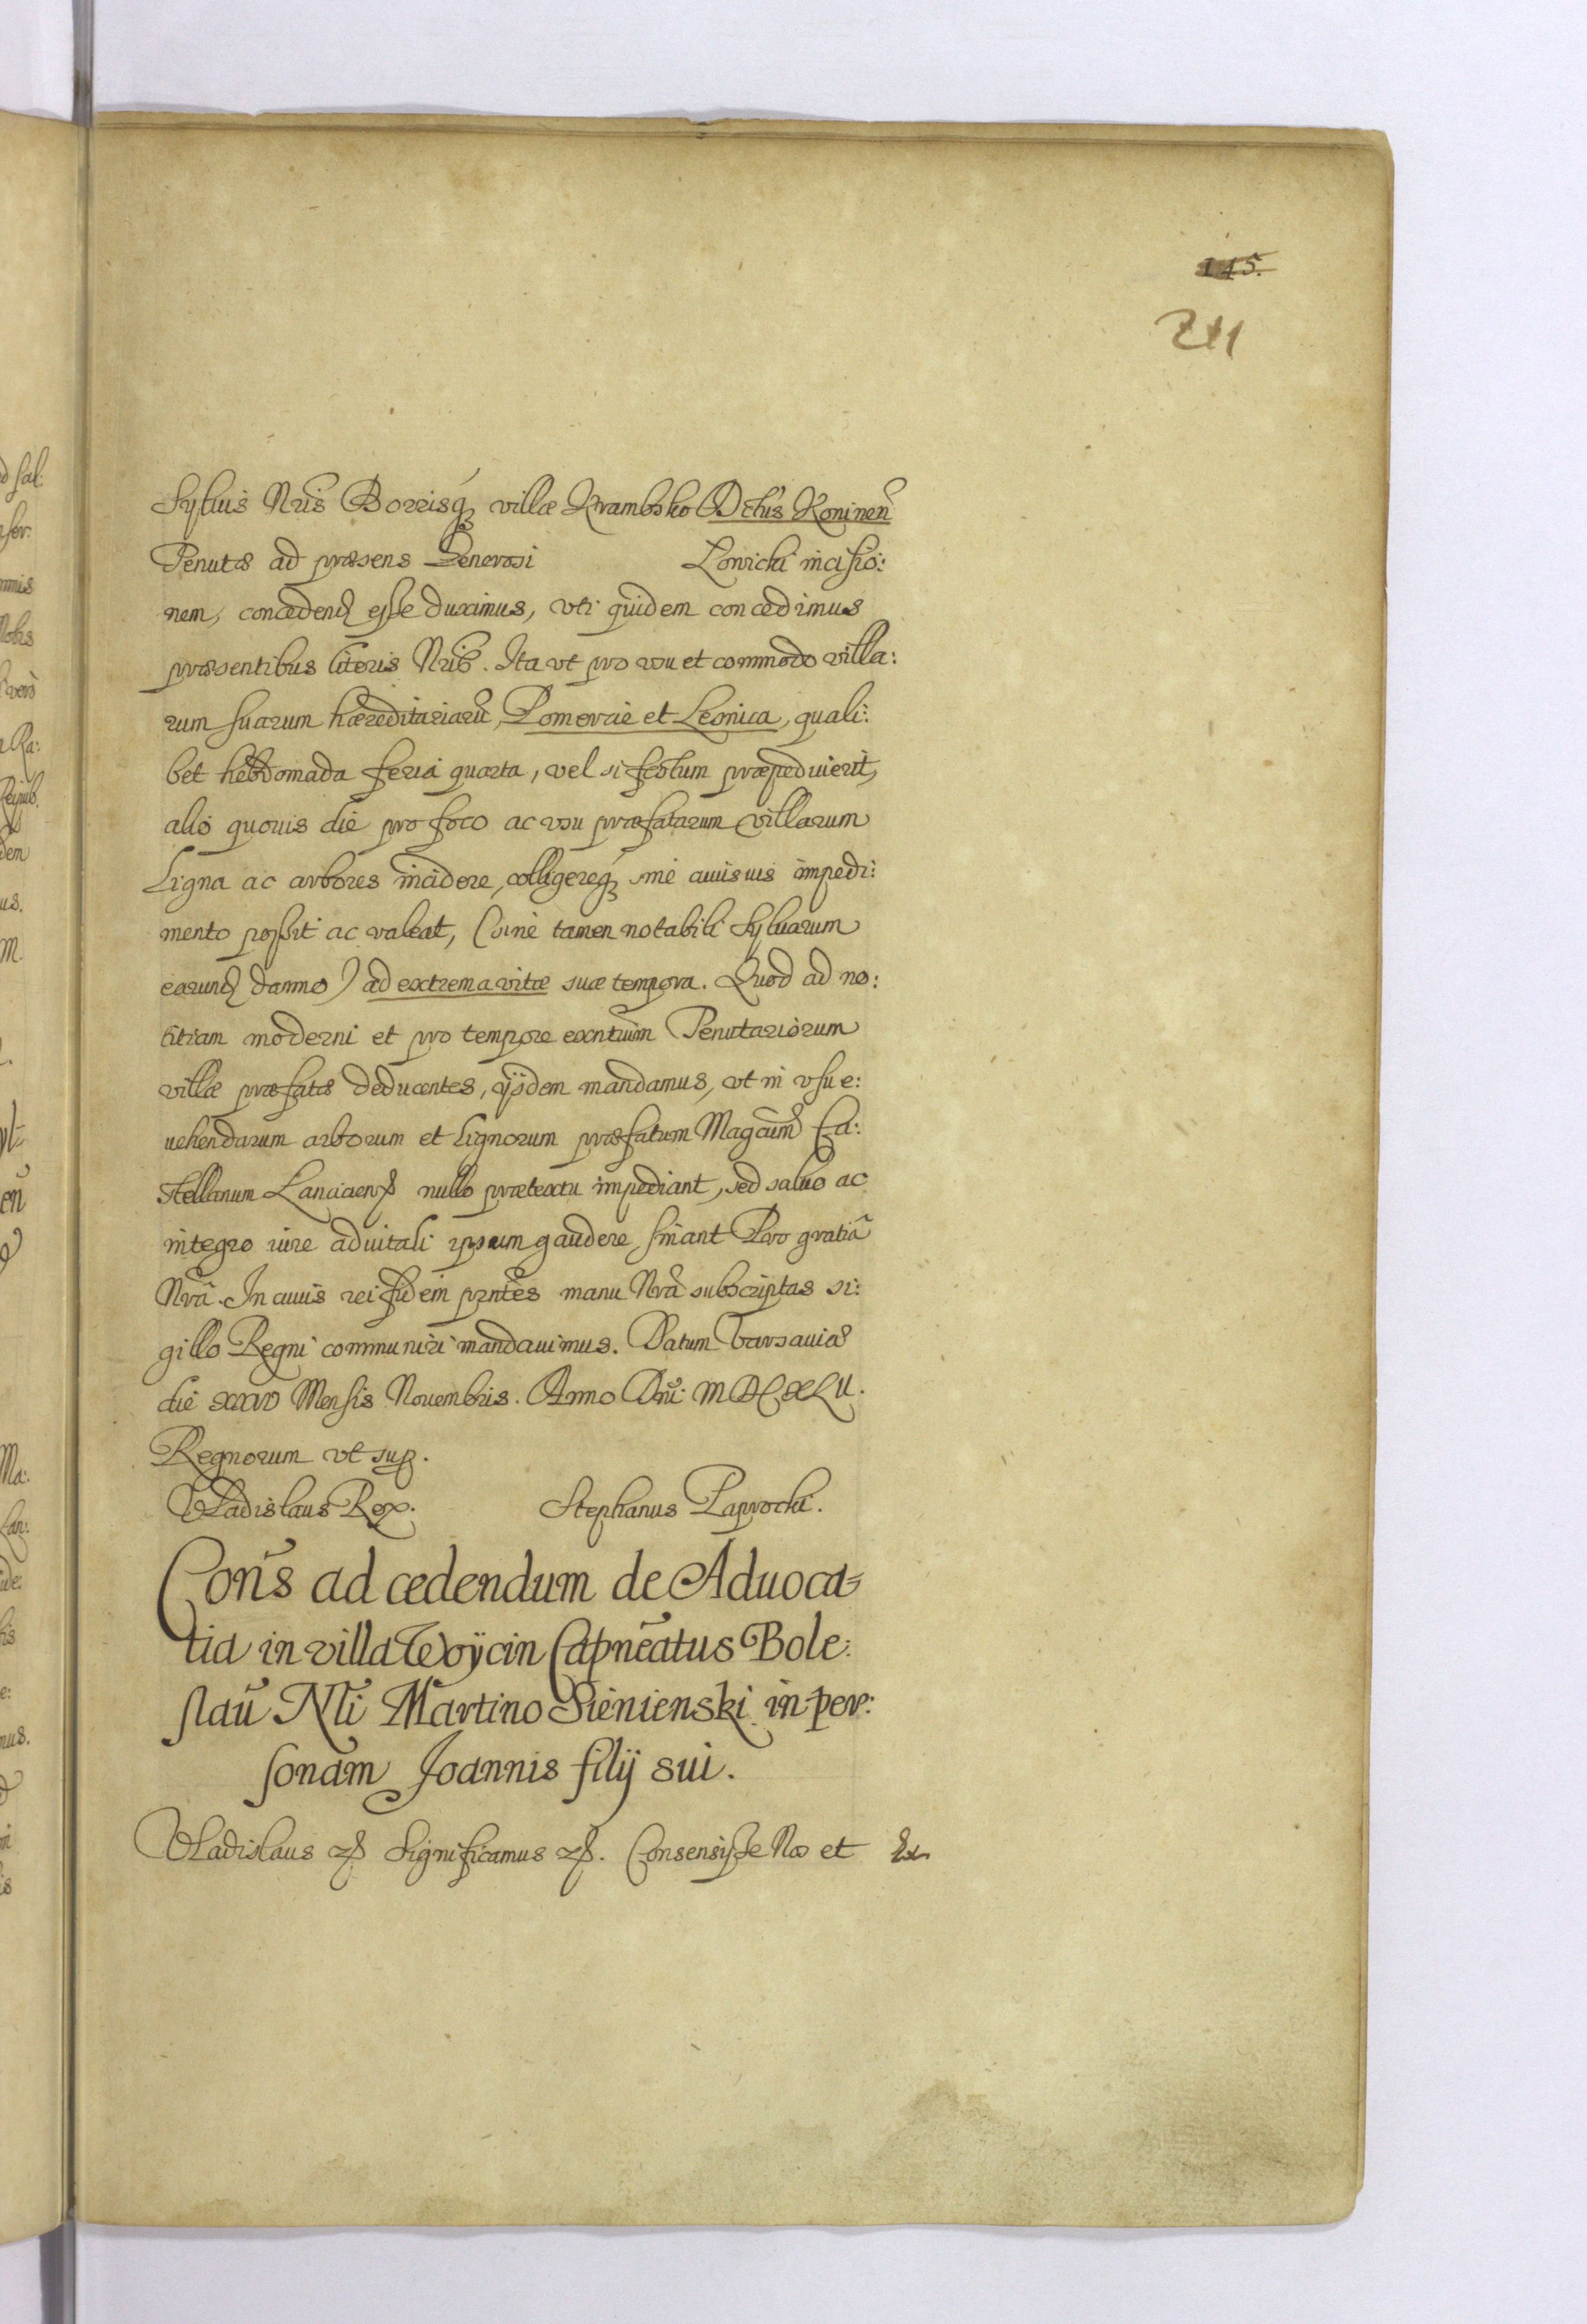 145.
211
Syluis Nris Borrisq villæ Krambsko Dctus Koninen
Tenutæ ad præsens Generosi Lowicki incisio:
nem, concedend esse duximus, vti quidem concedimus
præsentibus literis Nris. Ita vt pro vsu et commodo villa:
rum suarum hæreditariarū, Pomorcie et Leonica, quali:
bet hebdomada feria quarta, vel si festum præpeduierit,
alio quouis die pro foco ac vsu præfatarum villarum
Ligna ac arbores incidere, colligereq sine cuiusuis impedi:
mento possit ac valeat, (sine tamen notabili Syluarum
earund damno) ad extrema vitæ suæ tempora. Quod ad no:
titiam moderni et pro tempore exntium Tenutariorum
villæ præfatæ deducentes, ijsdem mandamus, vt in vsu e:
uehendarum arborum et lignorum præfatum Magcum Ca:
stellanum Lanciaen nullo prætextu impediant, sed saluo ac
integro iure aduitali ipsum gaudere sinant Pro gratiâ
Nrâ. In cuius rei fidem pntes manu Nrâ subscriptas si:
gillo Regni communiri mandauimus. Datum Varsauiæ
die xxv Mensis Nouembris. Anno Dni MDCXLV.
Regnorum vt sup.
Vladislaus Rex. Stephanus Paprocki.
Cons ad cedendum de Aduoca=
tia in villa Woÿcin Capneatus Bole:
slau Nli Martino Sienienski in per:
sonam Joannis filij sui.
Vladislaus etc Significamus etc. Consensisse Nos et Ex